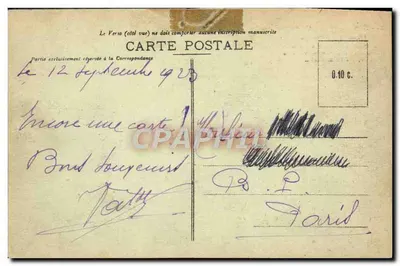 Le Verso (côté vue) ne doit comporter aucune inscription manuscrite
CARTE POSTALE
Partie exclusivement réservée à la Correspondance
Le 12 Septembre 1923
0.10 c.
Encore une carte !
Bons Souvenirs
B. P.
Paris